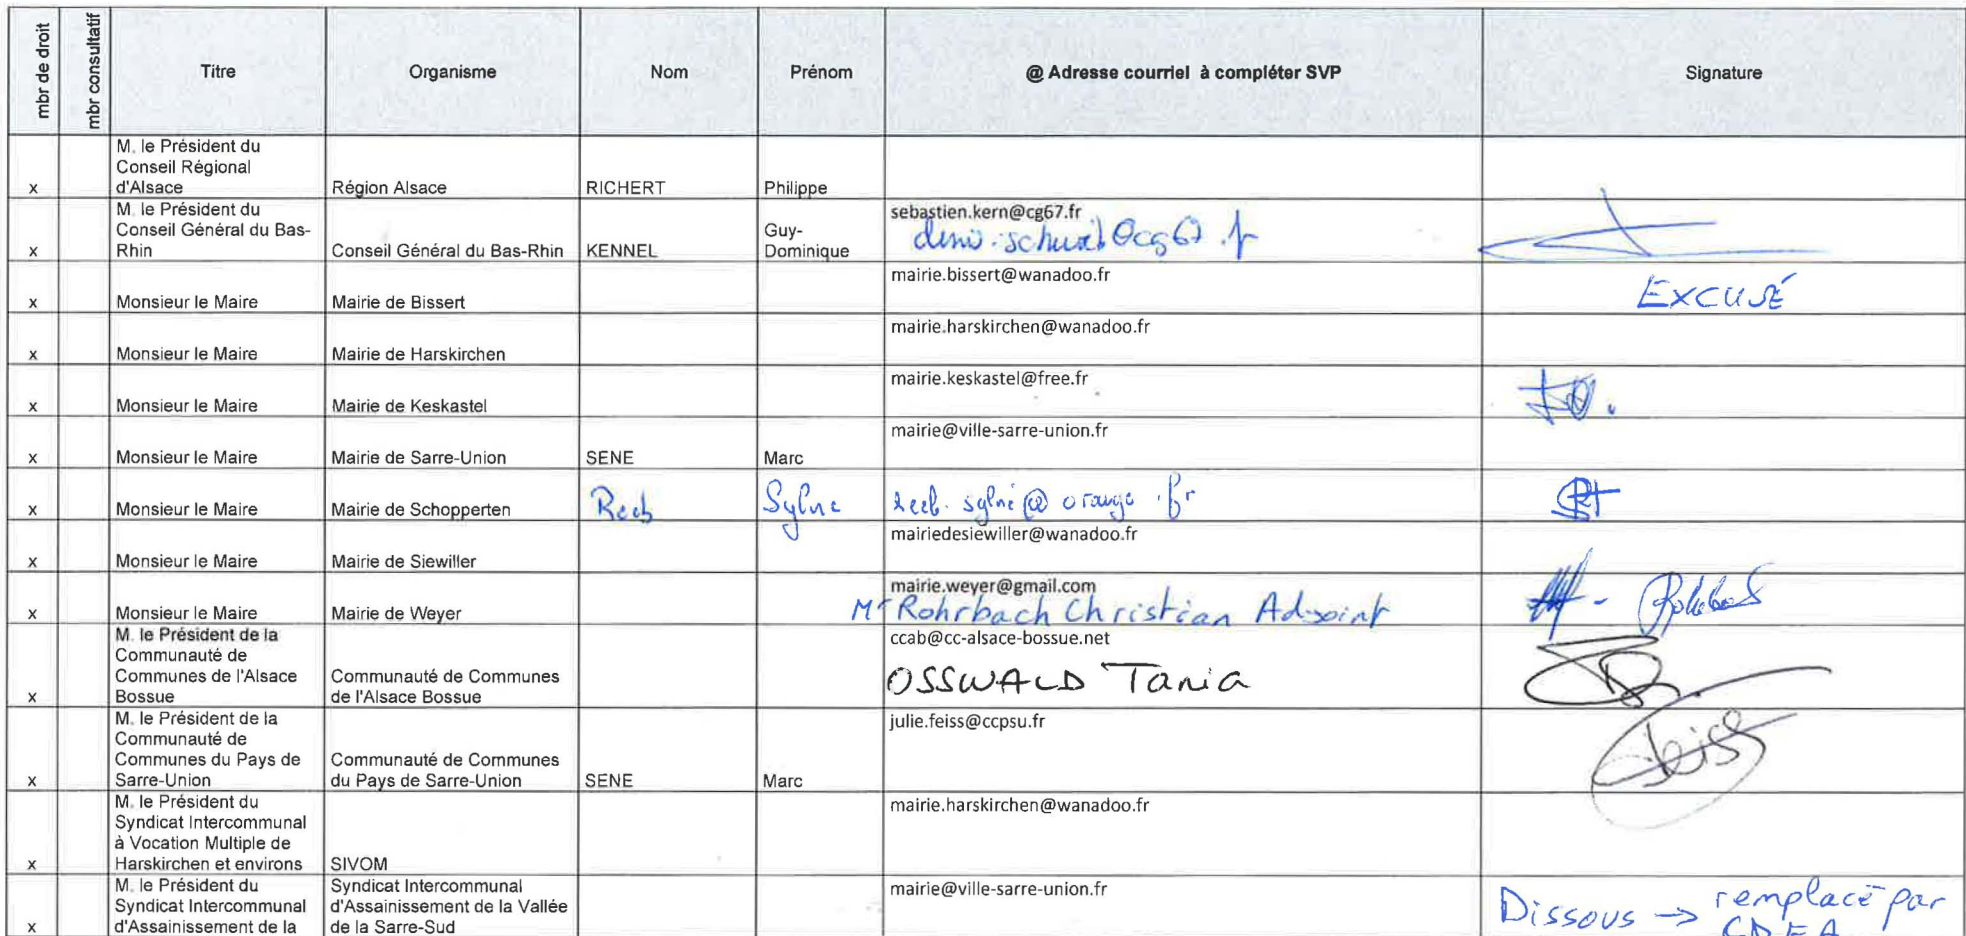 mbr de droit
mbr consultatif
Titre
Organisme
Nom
Prénom
@ Adresse courriel à compléter SVP
Signature
M. le Président du
Conseil Régional
d'Alsace
x
Région Alsace
RICHERT
Philippe
M. le Président du
Conseil Général du Bas-
Rhin
x
Conseil Général du Bas-Rhin
KENNEL
Guy-
Dominique
sebastien.kern@cg67.fr
@cg67.fr
x
Monsieur le Maire
Mairie de Bissert
mairie.bissert@wanadoo.fr
EXCUSÉ
x
Monsieur le Maire
Mairie de Harskirchen
mairie.harskirchen@wanadoo.fr
x
Monsieur le Maire
Mairie de Keskastel
mairie.keskastel@free.fr
x
Monsieur le Maire
Mairie de Sarre-Union
SENE
Marc
mairie@ville-sarre-union.fr
x
Monsieur le Maire
Mairie de Schopperten
Reeb
reeb. @ orange .fr
x
Monsieur le Maire
Mairie de Siewiller
mairiedesiewiller@wanadoo.fr
x
Monsieur le Maire
Mairie de Weyer
mairie.weyer@gmail.com
Mr Rohrbach Christian Adjoint
M. le Président de la
Communauté de
Communes de l'Alsace
Bossue
x
Communauté de Communes
de l'Alsace Bossue
ccab@cc-alsace-bossue.net
OSSWALD Tania
M. le Président de la
Communauté de
Communes du Pays de
Sarre-Union
x
Communauté de Communes
du Pays de Sarre-Union
SENE
Marc
julie.feiss@ccpsu.fr
Feiss
M. le Président du
Syndicat Intercommunal
à Vocation Multiple de
Harskirchen et environs
x
SIVOM
mairie.harskirchen@wanadoo.fr
M. le Président du
Syndicat Intercommunal
d'Assainissement de la
x
Syndicat Intercommunal
d'Assainissement de la Vallée
de la Sarre-Sud
mairie@ville-sarre-union.fr
Dissous → remplacé par